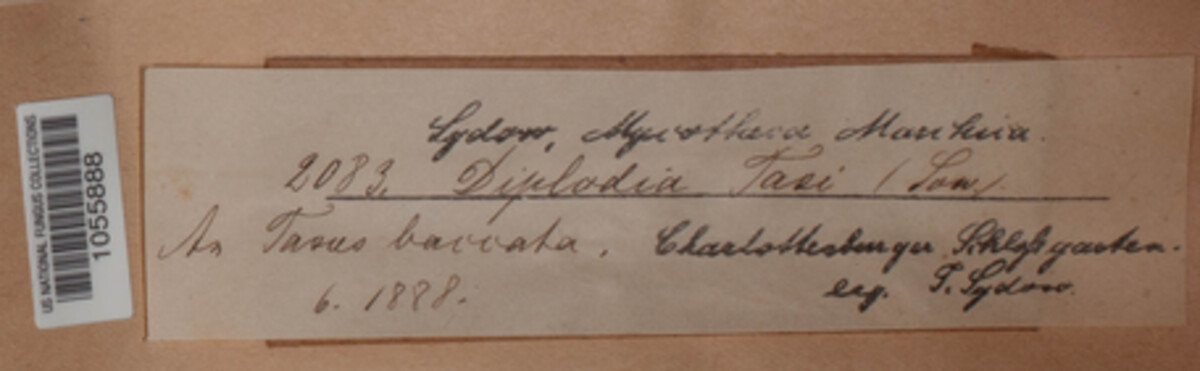 US NATIONAL FUNGUS COLLECTIONS
1055888
Sydow, Mycotheca Marchica.
2083. Diplodia Taxi (Sow)
An Taxus baccata. Charlottenburger Schloßgarten.
6. 1888. leg. P. Sydow.